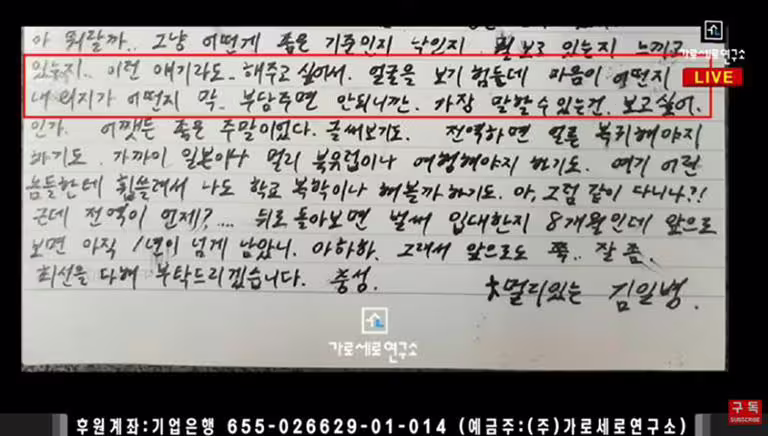 아 뭐랄까.. 그냥 어떤게 좋은 기준인지 낙인지 뭘 보고 있는지 느끼고
가로세로연구소
있는지.. 이런 얘기라도.. 해주고 싶어서. 얼굴을 보기 힘든데 마음이 어떤지
LIVE
내 의지가 어떤지 막.. 부담주면 안되니깐. 가장 말할 수 있는건. 보고싶어.
인가. 어쨋든 좋은 주말이었다. 글써보기도. 전역하면 얼른 복귀해야지
하기도. 가까이 일본이나 멀리 북유럽이나 여행해야지 한기도. 여기 어린
놈들한테 휩쓸려서 나도 학교 복학이나 해볼까 하기도. 아, 그럼 같이 다니나?!
근데 전역이 언제?.... 뒤로 돌아보면 벌써 입대한지 8개월인데 앞으로
보면 아직 1년이 넘게 남았니. 아하하. 그래서 앞으로도 쭉.. 잘 좀.
최선을 다해 부탁드리겠습니다. 충성.
멀리있는 김일병.
가로세로연구소
구독
SUBSCRIBE
후원계좌:기업은행 655-026629-01-014 (예금주:(주)가로세로연구소)